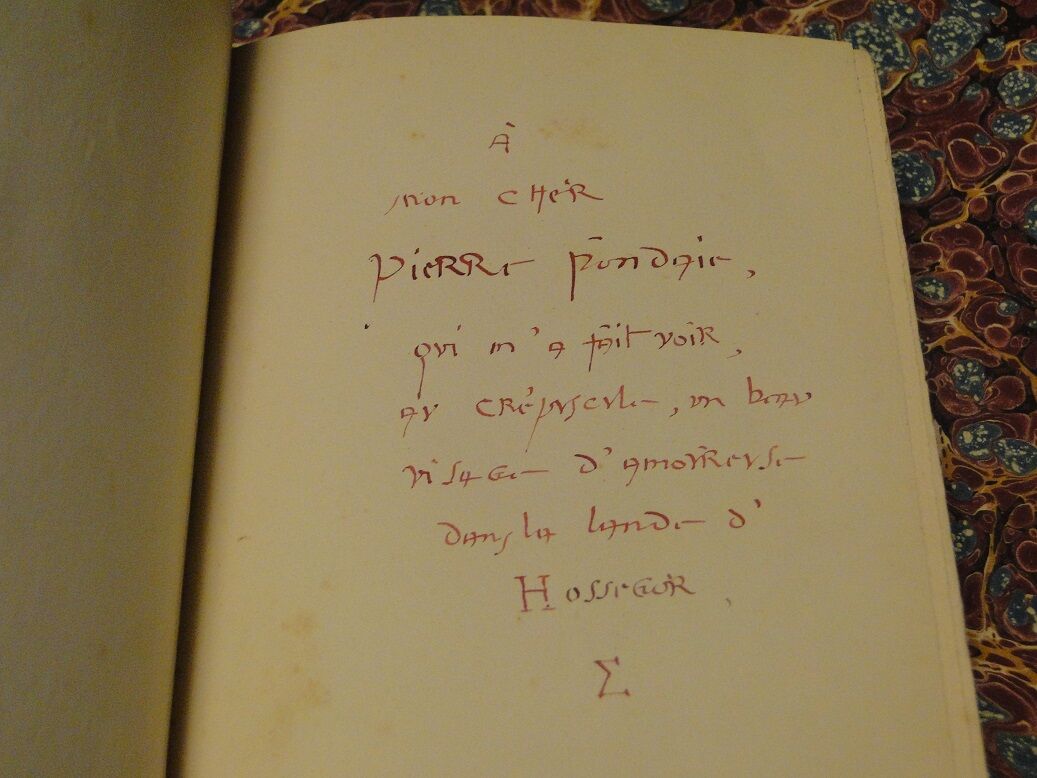 À
mon cher
Pierre Fondaie,
qui m'a fait voir,
au crépuscule, un beau
visage d'amoureuse
dans la lande d'
Hossegor,
Σ